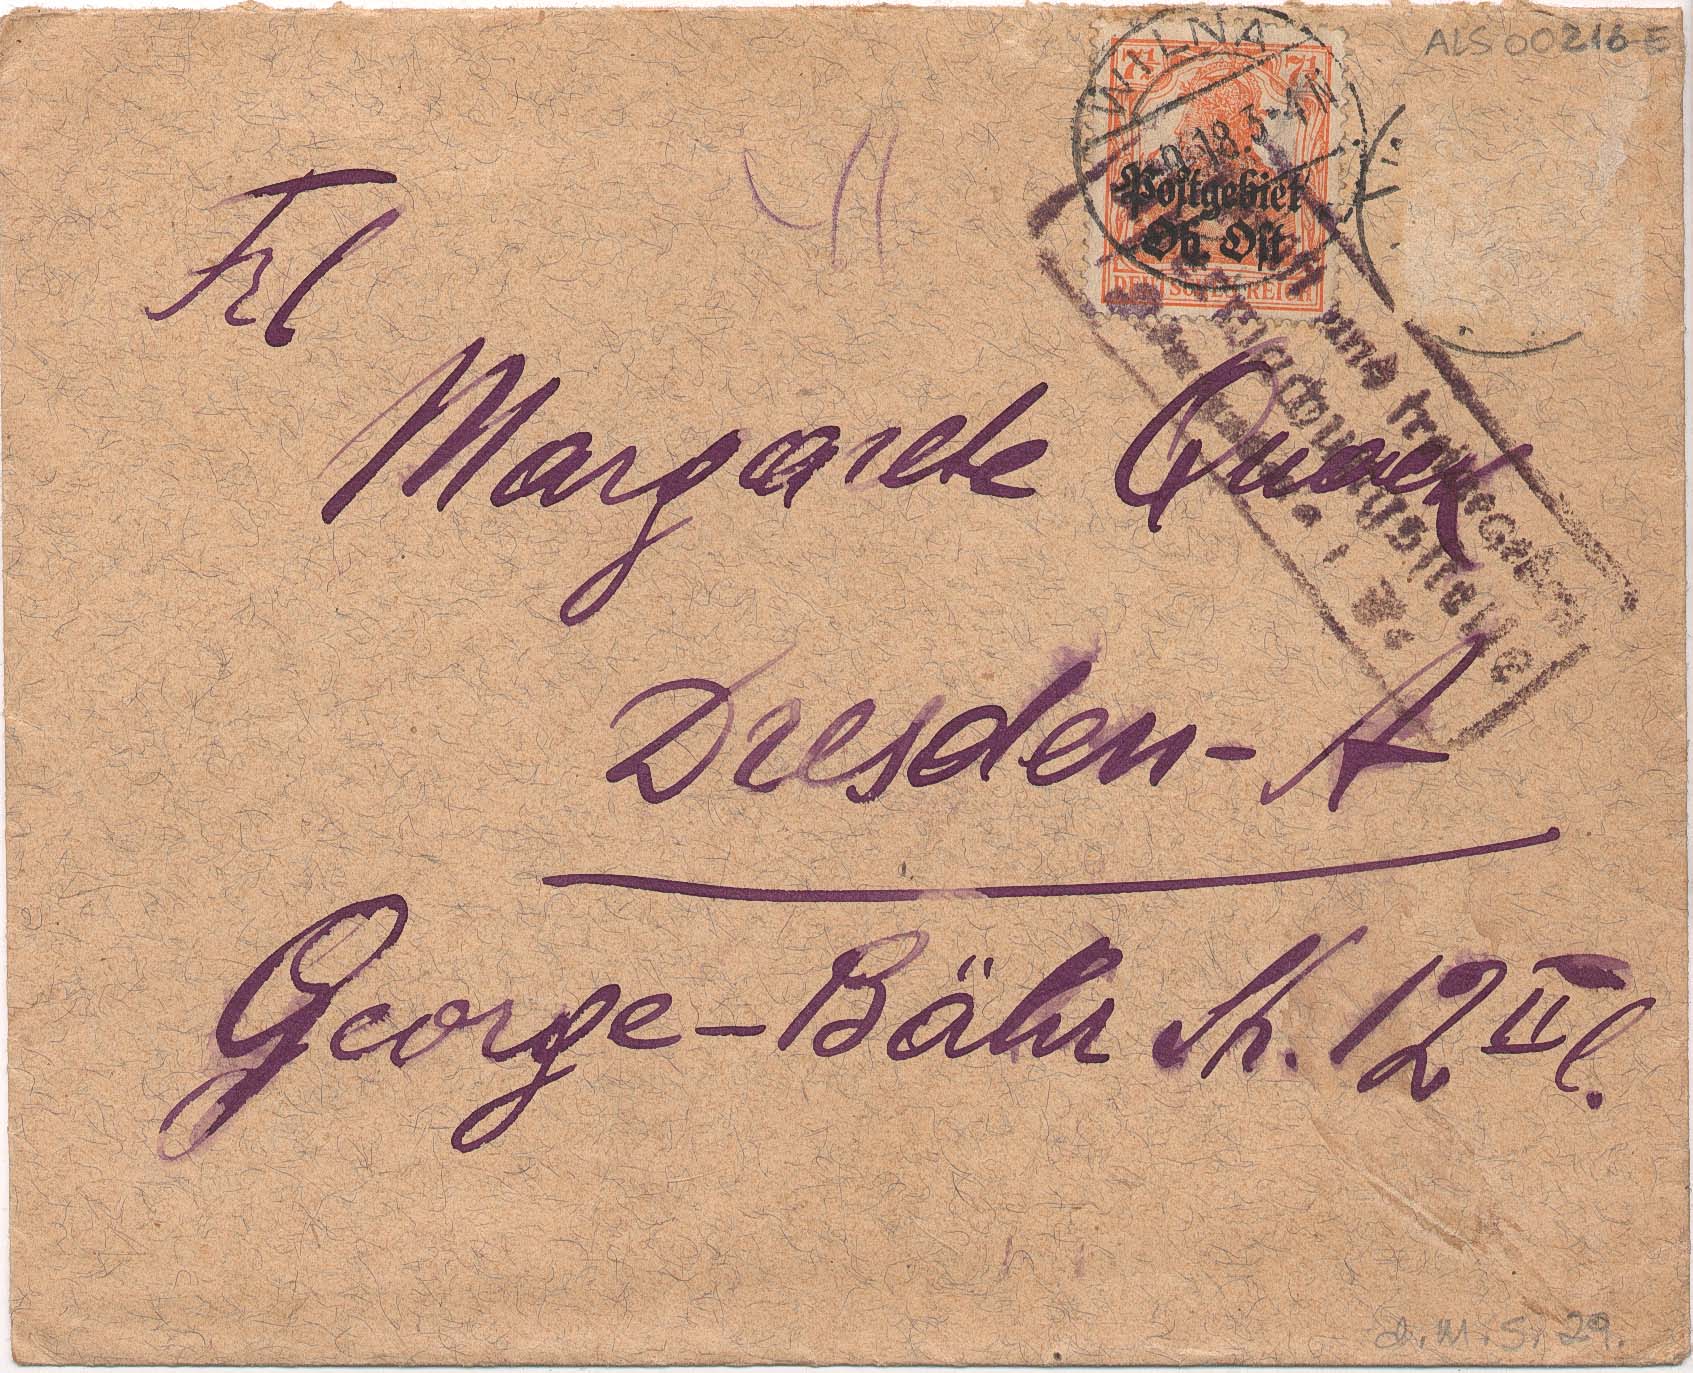 ALS 00216-E
WILNA
18.3-4N
7½ 7½
Postgebiet
Ob. Ost
DEUTSCHES REICH
und freigegeben
Frl
Margarete Quack
Dresden-A
George-Bähr Str. 12 II l.
d. M. S. 29.